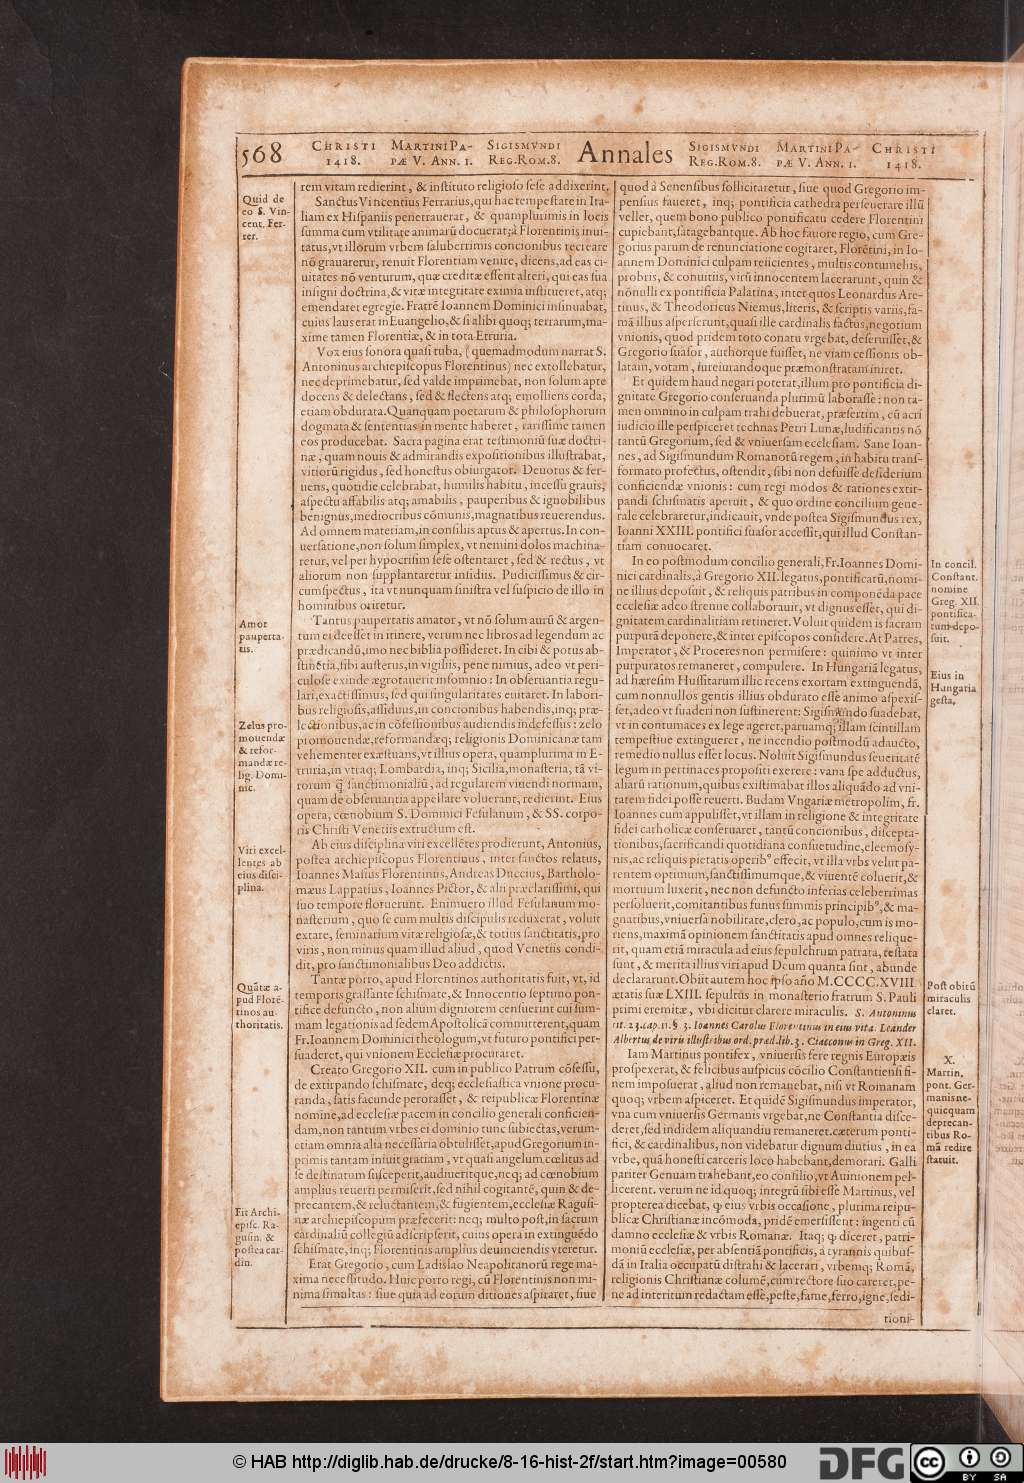 568
CHRISTI MARTINI PA- SIGISMVNDI Annales SIGISMVNDI MARTINI PA- CHRISTI
1418. PÆ V. ANN. 1. REG. ROM. 8. REG. ROM. 8. PÆ V. ANN. 1. 1418.
rem vitam redierint, & instituto religioso sese addixerint.
Quid de
eo S. Vin-
cent. Fer-
rer.
Sanctus Vincentius Ferrarius, qui hac tempestate in Ita-
liam ex Hispaniis penetrauerat, & quamplurimis in locis
summa cum vtilitate animarū docuerat; à Florentinis inui-
tatus, vt illorum vrbem saluberrimis concionibus recreare
nō grauaretur, renuit Florentiam venire, dicens, ad eas ci-
uitates nō venturum, quæ creditæ essent alteri, qui eas sua
insigni doctrina, & vitæ integritate eximia institueret, atq;
emendaret egregie. Fratrē Ioannem Dominici insinuabat,
cuius laus erat in Euangelio, & si alibi quoq; terrarum, ma-
xime tamen Florentiæ, & in tota Etruria.
Vox eius sonora quasi tuba, (quemadmodum narrat S.
Antoninus archiepiscopus Florentinus) nec extollebatur,
nec deprimebatur, sed valde imprimebat, non solum apte
docens & delectans, sed & flectens atq; emolliens corda,
etiam obdurata. Quanquam poetarum & philosophorum
dogmata & sententias in mente haberet, rarissime tamen
eos producebat. Sacra pagina erat testimoniū suæ doctri-
næ, quam nouis & admirandis expositionibus illustrabat,
vitiorū rigidus, sed honestus obiurgator. Deuotus & fer-
uens, quotidie celebrabat, humilis habitu, incessu grauis,
aspectu affabilis atq; amabilis, pauperibus & ignobilibus
benignus, mediocribus cōmunis, magnatibus reuerendus.
Ad omnem materiam, in consiliis aptus & apertus. In con-
uersatione, non solum simplex, vt nemini dolos machina-
retur, vel per hypocrisim sese ostentaret, sed & rectus, vt
aliorum non supplantaretur insidiis. Pudicissimus & cir-
cumspectus, ita vt nunquam sinistra vel suspicio de illo in
hominibus oriretur.
Amor
pauperta-
tis.
Tantus paupertatis amator, vt nō solum aurū & argen-
tum ei deesset in itinere, verum nec libros ad legendum ac
prædicandū, imo nec biblia possideret. In cibi & potus ab-
stinētia, sibi austerus, in vigiliis, pene nimius, adeo vt peri-
culose exinde ægrotauerit insomnio: In obseruantia regu-
lari, exactissimus, sed qui singularitates euitaret. In labori-
bus religiosis, assiduus, in concionibus habendis, inq; præ-
lectionibus, ac in cōfessionibus audiendis indefessus: zelo
Zelus pro-
mouendæ
& refor-
mandæ re-
lig. Domi-
nic.
promouendæ, reformandæq; religionis Dominicanæ tam
vehementer exæstuans, vt illius opera, quamplurima in E-
truria, in vtraq; Lombardia, inq; Sicilia, monasteria, tā vi-
rorum q̄ sanctimonialiū, ad regularem viuendi normam,
quam de obseruantia appellare voluerunt, redierint. Eius
opera, cœnobium S. Dominici Fesulanum, & SS. corpo-
ris Christi Venetiis extructum est.
Viri excel-
lentes ab
eius disci-
plina.
Ab eius disciplina viri excellētes prodierunt, Antonius,
postea archiepiscopus Florentinus, inter sanctos relatus,
Ioannes Masius Florentinus, Andreas Duccius, Bartholo-
mæus Lappatius, Ioannes Pictor, & alii præclarissimi, qui
suo tempore floruerunt. Enimuero illud Fesulanum mo-
nasterium, quo se cum multis discipulis reduxerat, voluit
extare, seminarium vitæ religiosæ, & totius sanctitatis, pro
viris, non minus quam illud aliud, quod Venetiis condi-
dit, pro sanctimonialibus Deo addictis.
Quātæ a-
pud Florē-
tinos au-
thoritatis.
Tantæ porro, apud Florentinos authoritatis fuit, vt, id
temporis grassante schismate, & Innocentio septimo pon-
tifice defuncto, non alium digniorem censuerint cui sum-
mam legationis ad sedem Apostolicā committerent, quam
Fr. Ioannem Dominici theologum, vt futuro pontifici per-
suaderet, qui vnionem Ecclesiæ procuraret.
Creato Gregorio XII. cum in publico Patrum cōsessu,
de extirpando schismate, deq; ecclesiastica vnione procu-
randa, satis facunde perorasset, & reipublicæ Florentinæ
nomine, ad ecclesiæ pacem in concilio generali conficien-
dam, non tantum vrbes ei dominio tunc subiectas, verum-
etiam omnia alia necessaria obtulisset, apud Gregorium in-
primis tantam iniuit gratiam, vt quasi angelum cœlitus ad
se destinatum susceperit, audiueritque, neq; ad cœnobium
amplius reuerti permiserit, sed nihil cogitantē, quin & de-
precantem, & reluctantem, & fugientem, ecclesiæ Ragusi-
Fit Archi-
episc. Ra-
gusin. &
postea car-
din.
næ archiepiscopum præfecerit: neq; multo post, in sacrum
cardinaliū collegiū adscripserit, cuius opera in extinguēdo
schismate, inq; Florentinis amplius deuinciendis vteretur.
Erat Gregorio, cum Ladislao Neapolitanorū rege ma-
xima necessitudo. Huic porro regi, cū Florentinis non mi-
nima simultas: siue quia ad eorum ditiones aspiraret, siue
quod à Senensibus sollicitaretur, siue quod Gregorio im-
pensius faueret, inq; pontificia cathedra perseuerare illū
vellet, quem bono publico pontificatu cedere Florentini
cupiebant, satagebantque. Ab hoc fauore regio, cum Gre-
gorius parum de renunciatione cogitaret, Florētini, in Io-
annem Dominici culpam reiicientes, multis contumeliis,
probris, & conuitiis, virū innocentem lacerarunt, quin &
nōnulli ex pontificia Palatina, inter quos Leonardus Are-
tinus, & Theodoricus Niemus, literis, & scriptis variis, fa-
mā illius asperserunt, quasi ille cardinalis factus, negotium
vnionis, quod pridem toto conatu vrgebat, deseruisset, &
Gregorio suasor, authorque fuisset, ne viam cessionis ob-
latam, votam, iureiurandoque præmonstratam iniret.
Et quidem haud negari poterat, illum pro pontificia di-
gnitate Gregorio conseruanda plurimū laborasse: non ta-
men omnino in culpam trahi debuerat, præsertim, cū acri
iudicio ille perspiceret technas Petri Lunæ, ludificantis nō
tantū Gregorium, sed & vniuersam ecclesiam. Sane Ioan-
nes, ad Sigismundum Romanorū regem, in habitu trans-
formato profectus, ostendit, sibi non defuisse desiderium
conficiendæ vnionis: cum regi modos & rationes extir-
pandi schismatis aperuit, & quo ordine concilium gene-
rale celebraretur, indicauit, vnde postea Sigismundus rex,
Ioanni XXIII. pontifici suasor accessit, qui illud Constan-
tiam conuocaret.
In concil.
Constant.
nomine
Greg. XII.
pontifica-
tum depo-
suit.
In eo postmodum concilio generali, Fr. Ioannes Domi-
nici cardinalis, à Gregorio XII. legatus, pontificatū, nomi-
ne illius deposuit, & reliquis patribus in componēda pace
ecclesiæ adeo strenue collaborauit, vt dignus esset, qui di-
gnitatem cardinalitiam retineret. Voluit quidem is sacram
purpurā deponere, & inter episcopos considere. At Patres,
Imperator, & Proceres non permisere: quinimo vt inter
purpuratos remaneret, compulere. In Hungariā legatus,
Eius in
Hungaria
gesta.
ad hæresim Hussitarum illic recens exortam extinguendā,
cum nonnullos gentis illius obdurato esse animo aspexis-
set, adeo vt suaderi non sustinerent: Sigismundo suadebat,
vt in contumaces ex lege ageret, paruamq; illam scintillam
tempestiue extingueret, ne incendio postmodū adaucto,
remedio nullus esset locus. Noluit Sigismundus seueritatē
legum in pertinaces propositi exerere: vana spe adductus,
aliarū rationum, quibus existimabat illos aliquādo ad vni-
tatem fidei posse reuerti. Budam Vngariæ metropolim, fr.
Ioannes cum appulisset, vt illam in religione & integritate
fidei catholicæ conseruaret, tantū concionibus, discepta-
tionibus, sacrificandi quotidiana consuetudine, eleemosy-
nis, ac reliquis pietatis operib⁹ effecit, vt illa vrbs velut pa-
rentem optimum, sanctissimumque, & viuentē coluerit, &
mortuum luxerit, nec non defuncto inferias celeberrimas
persoluerit, comitantibus funus summis principib⁹, & ma-
gnatibus, vniuersa nobilitate, clero, ac populo, cum is mo-
riens, maximā opinionem sanctitatis apud omnes relique-
rit, quam etiā miracula ad eius sepulchrum patrata, testata
sunt, & merita illius viri apud Deum quanta sint, abunde
Post obitū
miraculis
claret.
declararunt. Obiit autem hoc ipso año M.CCCC.XVIII
ætatis suæ LXIII. sepultus in monasterio fratrum S. Pauli
primi eremitæ, vbi dicitur clarere miraculis. S. Antoninus
tit. 23. cap. 11. § 3. Ioannes Carolus Florentinus in eius vita. Leander
Albertus de viris illustribus ord. præd. lib. 3. Ciaconus in Greg. XII.
X.
Martin.
pont. Ger-
manis ne-
quicquam
deprecan-
tibus Ro-
mā redire
statuit.
Iam Martinus pontifex, vniuersis fere regnis Europæis
prosperxerat, & felicibus auspiciis cōcilio Constantiensi fi-
nem imposuerat, aliud non remanebat, nisi vt Romanam
quoq; vrbem aspiceret. Et quidē Sigismundus imperator,
vna cum vniuersis Germanis vrgebat, ne Constantia disce-
deret, sed inidem aliquandiu remaneret. cæterum ponti-
fici, & cardinalibus, non videbatur dignum diutius, in ea
vrbe, quā honesti carceris loco habebant, demorari. Galli
pariter Genuam trahebant, eo consilio, vt Auinionem pel-
licerent. verum ne id quoq; integrū sibi esse Martinus, vel
propterea dicebat, q̧ eius vrbis occasione, plurima reipu-
blicæ Christianæ incōmoda, pridē emersissent: ingenti cū
damno ecclesiæ & vrbis Romanæ. Itaq; q̧ diceret, patri-
moniū ecclesiæ, per absentiā pontificis, à tyrannis quibus-
dā in Italia occupatū distrahi & lacerari, vrbemq; Romā,
religionis Christianæ columē, cum rectore suo careret, pe-
ne ad interitum redactam esse, peste, fame, ferro, igne, sedi-
tioni-
© HAB http://diglib.hab.de/drucke/8-16-hist-2f/start.htm?image=00580
DFG
cc
BY SA